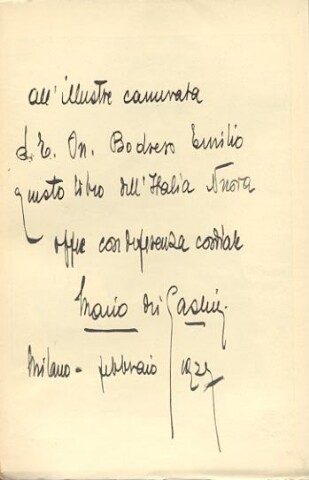 all'illustre camerata
S. E. On. Bodrero Emilio
questo libro dell'Italia Nuova
offre con deferenza cordiale
Mario dei Gaslini
Milano - febbraio 1929